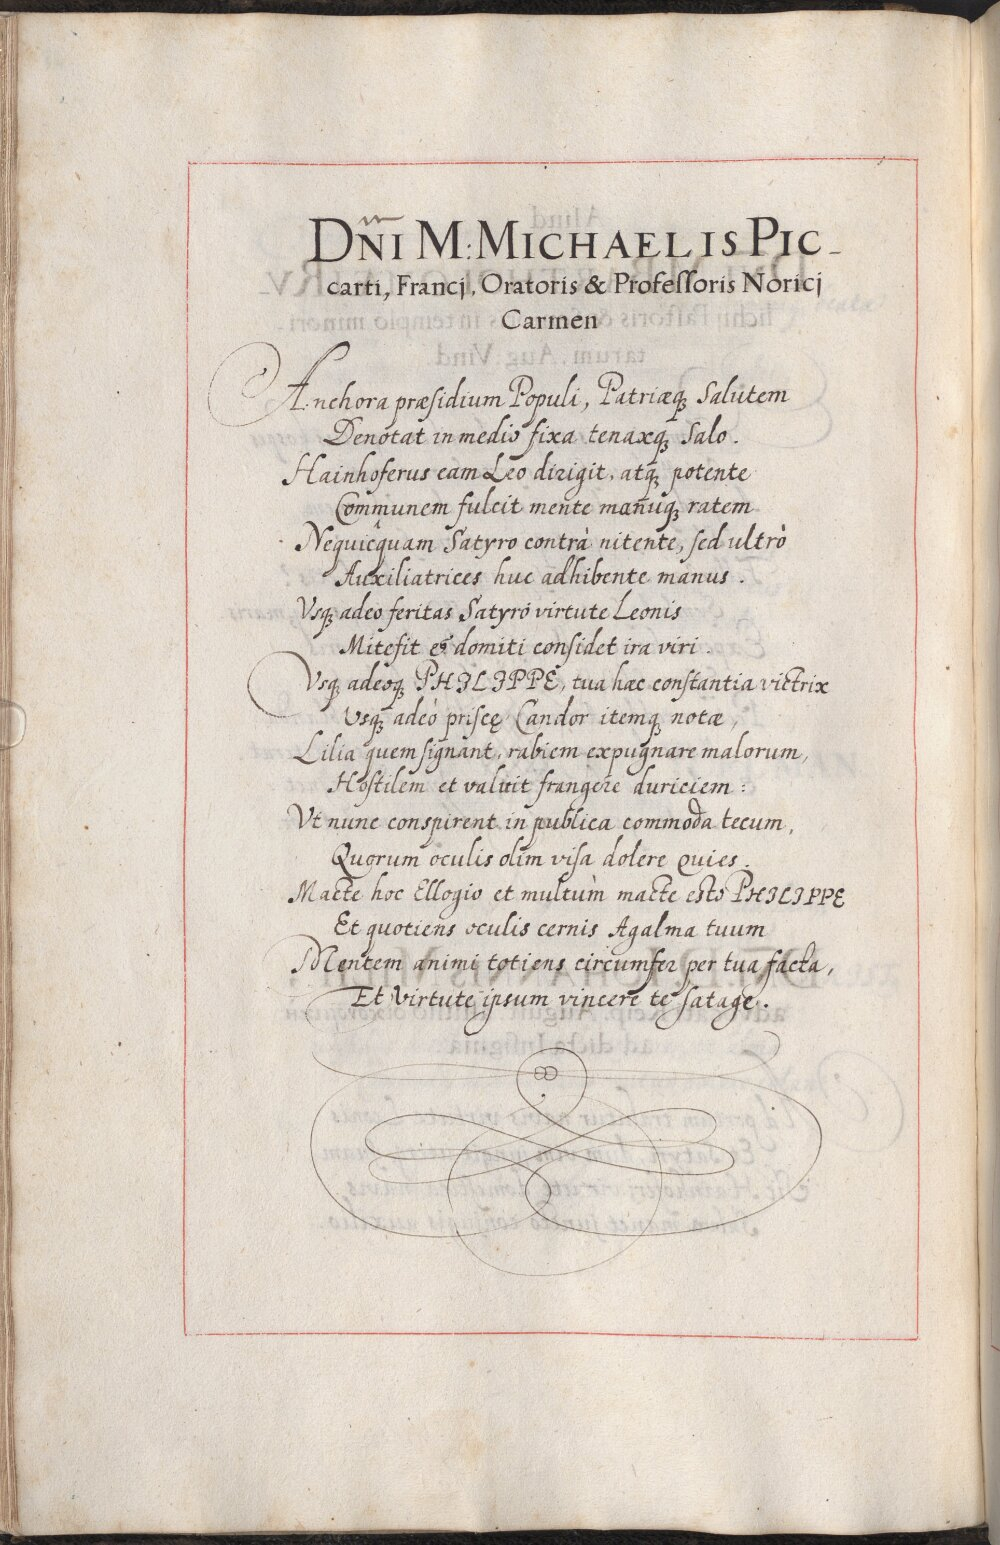 Dñi M: Michaelis Pic-
carti, Francj, Oratoris & Professoris Noricj
Carmen
Anchora præsidium Populi, Patriæq₃ salutem
Denotat in medio fixa tenaxq₃ Salo.
Hainhoferus eam Leo dirigit, atq₃ potente
Communem fulcit mente manũq₃ ratem
Nequicquam Satyro contrà nitente, sed ultrò
Auxiliatrices huc adhibente manus.
Vsq₃ adeo feritas Satyró virtute Leonis
Mitefit & domiti considet ira viri.
Vsq₃ adeoq₃ PHILIPPE, tua hæc constantia victrix
Vsq₃ adeò priscę Candor itemq₃ notæ,
Lilia quem signant, rabiem expugnare malorum,
Hostilem et valuit frangere duriciem:
Vt nunc conspirent in publica commoda tecum,
Quorum oculis olim visa dolere quies.
Macte hoc Ellogio et multùm macte esto PHILIPPE
Et quotiens oculis cernis Agalma tuum
Mentem animi totiens circumfer per tua facta,
Et Virtute ipsum vincere te satage.